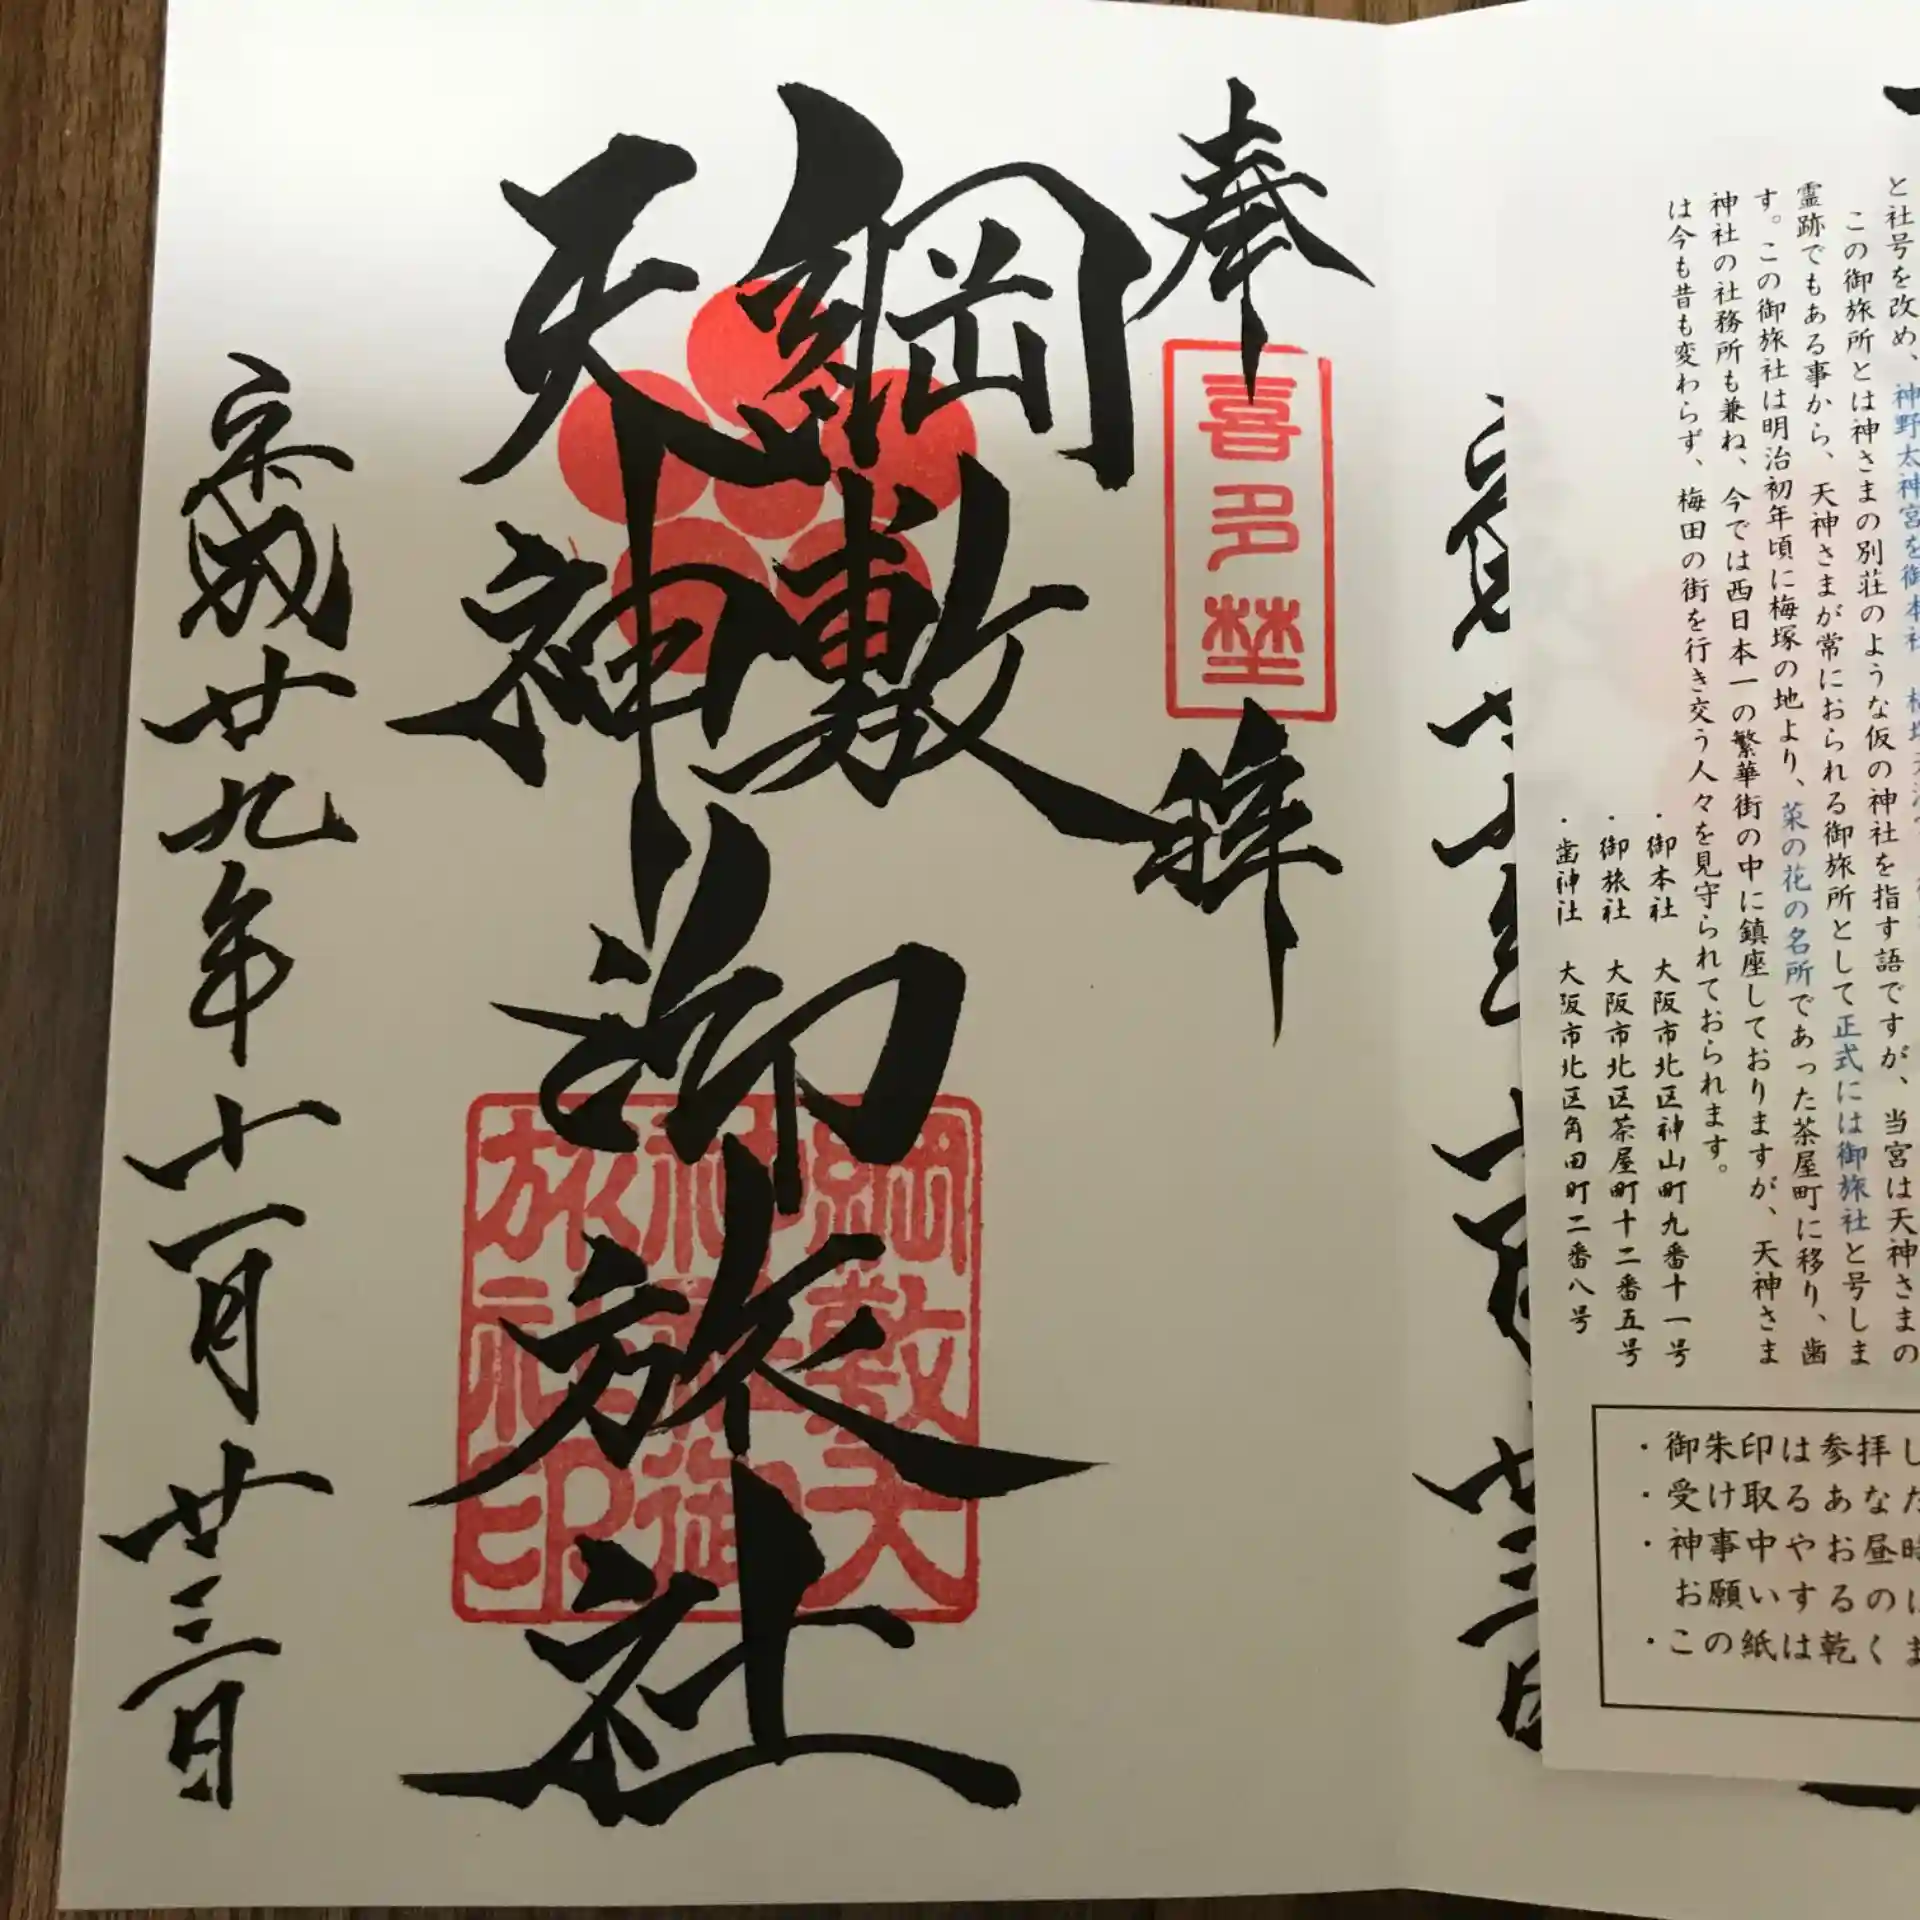 奉拝
喜多埜
綱敷
天神
御旅社
綱敷天
神社御
旅社印
平成廿九年十一月廿三日
と社号を改め、神野太神宮を御本社
この御旅所とは神さまの別荘のような仮の神社を指す語ですが、当宮は天神さまの
霊跡でもある事から、天神さまが常におられる御旅所として正式には御旅社と号しま
す。この御旅社は明治初年頃に梅塚の地より、菜の花の名所であった茶屋町に移り、歯
神社の社務所も兼ね、今では西日本一の繁華街の中に鎮座しておりますが、天神さま
は今も昔も変わらず、梅田の街を行き交う人々を見守られております。
・御本社 大阪市北区神山町九番十一号
・御旅社 大阪市北区茶屋町十二番五号
・歯神社 大阪市北区角田町二番八号
・御朱印は参拝し
・受け取るあなた
・神事中やお昼時
お願いするのは
・この紙は乾くま